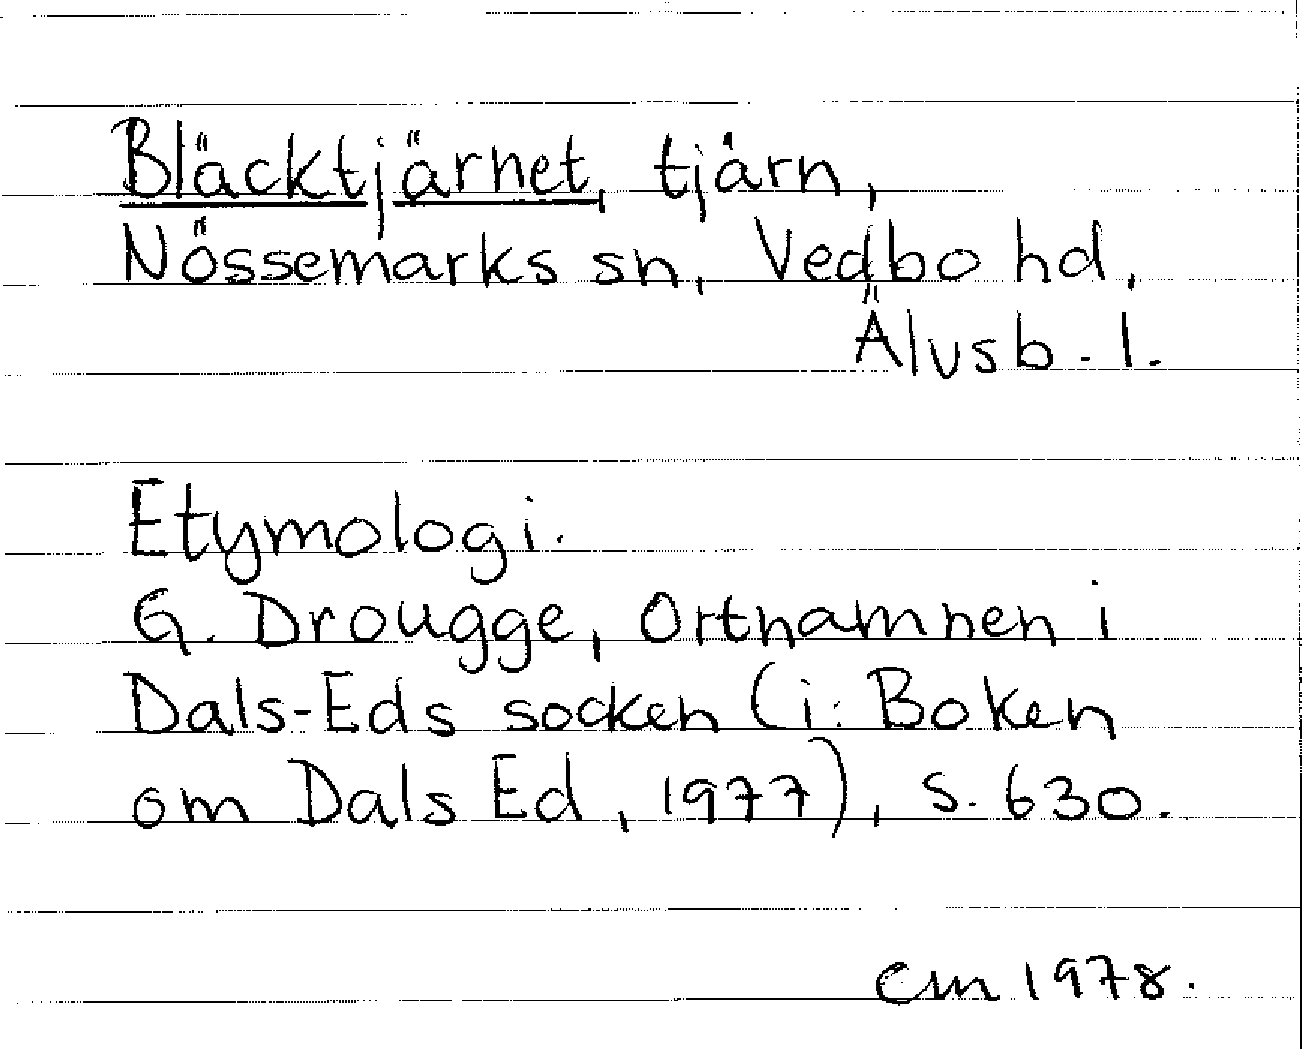 Bläcktjärnet, tjärn,
Nössemarks sn, Vedbo hd,
Älvsb. l.
Etymologi.
G. Drougge, Ortnamnen i
Dals-Eds socken (i: Boken
om Dals Ed, 1977), s. 630.
Em 1978.